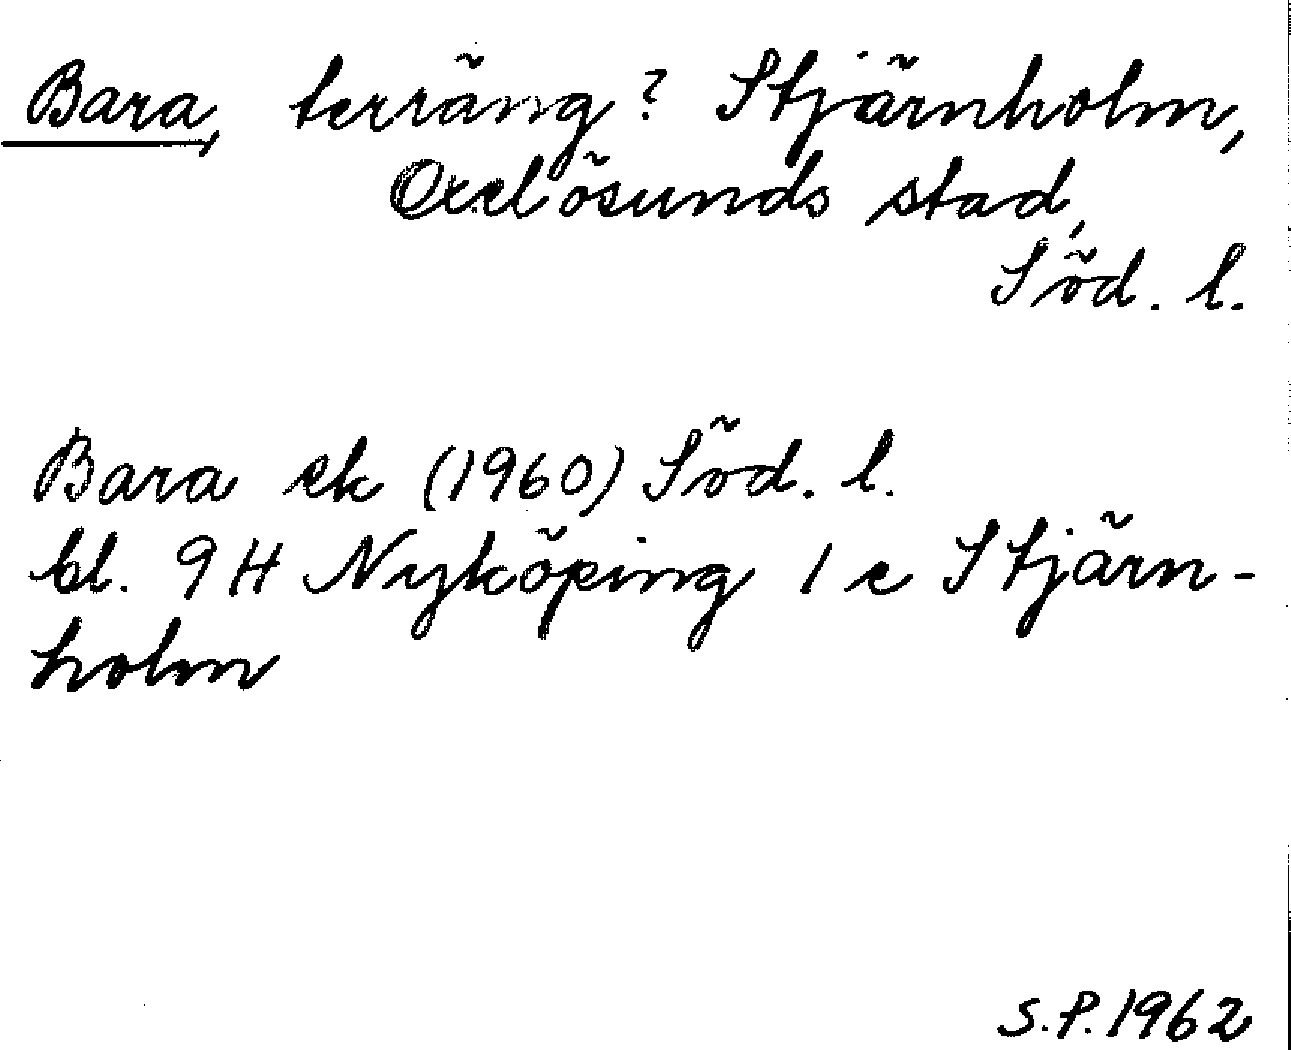 Bara, terräng? Stjärnholm,
Oxelösunds stad,
Söd. l.
Bara ek (1960) Söd. l.
bl. 9H Nyköping 1 e Stjärn-
holm
S.P. 1962